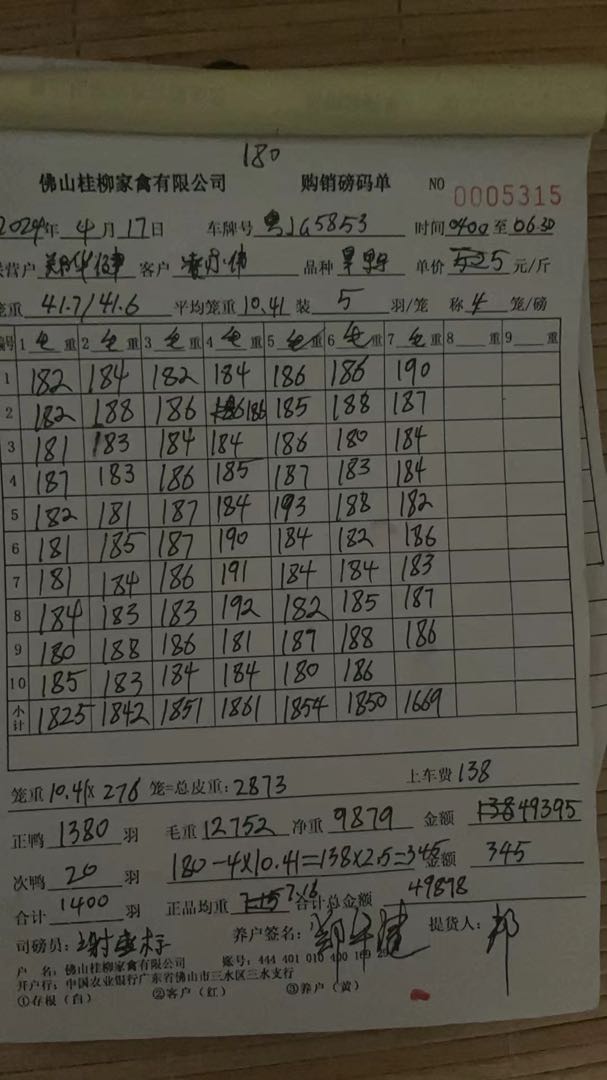 180
佛山桂柳家禽有限公司 购销磅码单 NO 0005315
2024年 4月17日 车牌号 粤JG5853 时间0400至0630
联营户 客户 品种 单价 525 元/斤
笼重 41.7/41.6 平均笼重10.41 装 5 羽/笼 称 4 笼/磅
编号 1 毛重 2 毛重 3 毛重 4 毛重 5 毛重 6 毛重 7 毛重 8 重 9 重
1 182 184 182 184 186 186 190
2 182 188 186 186 185 188 187
3 181 183 184 184 186 180 184
4 187 183 186 185 187 183 184
5 182 181 187 184 193 188 182
6 181 185 187 190 184 182 186
7 181 184 186 191 184 184 183
8 184 183 183 192 182 185 187
9 180 188 186 181 187 188 186
10 185 183 184 184 180 186
小计 1825 1842 1851 1861 1854 1850 1669
笼重10.41×276笼=总皮重:2873 上车费138
正鸭 1380 羽 毛重12752 净重9879 金额 49395
次鸭 20 羽 180-4×10.41=138×2.5=345 金额 345
合计 1400 羽 正品均重 7.16 合计总金额 49878
司磅员: 养户签名: 提货人:
户 名:佛山桂柳家禽有限公司 账号:444 401 010 400 169 29
开户行:中国农业银行广东省佛山市三水区三水支行
①存根(白) ②客户(红) ③养户(黄)